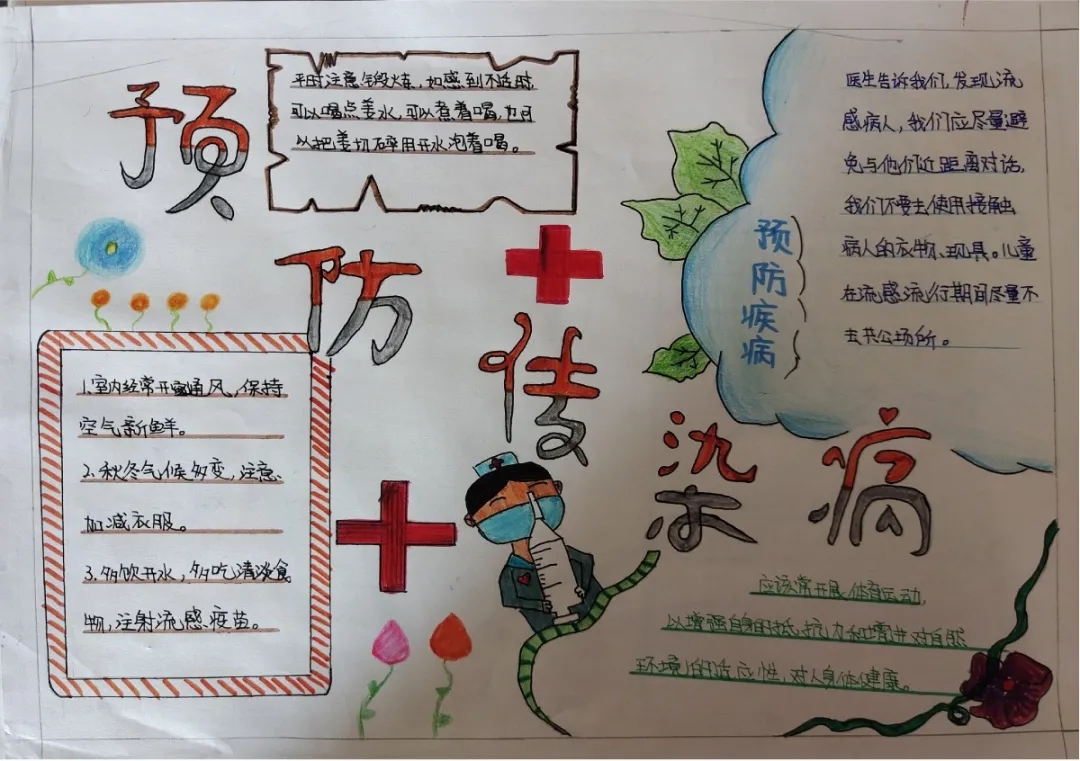 预防传染病
平时注意锻炼，如感到不适时，
可以喝点姜水，可以煮着喝，也可
以把姜切碎用开水泡着喝。
医生告诉我们，发现流
感病人，我们应尽量避
免与他们近距离对话，
我们不要去使用接触
病人的衣物、玩具。儿童
在流感流行期间尽量不
去共公场所。
预防疾病
1.室内经常开窗通风，保持
空气新鲜。
2.秋冬气候多变，注意
加减衣服。
3.多饮开水，多吃清淡食
物，注射流感疫苗。
应该常开展体育运动，
以增强自身的抵抗力和增进对自然
环境的适应性，对人身体健康。